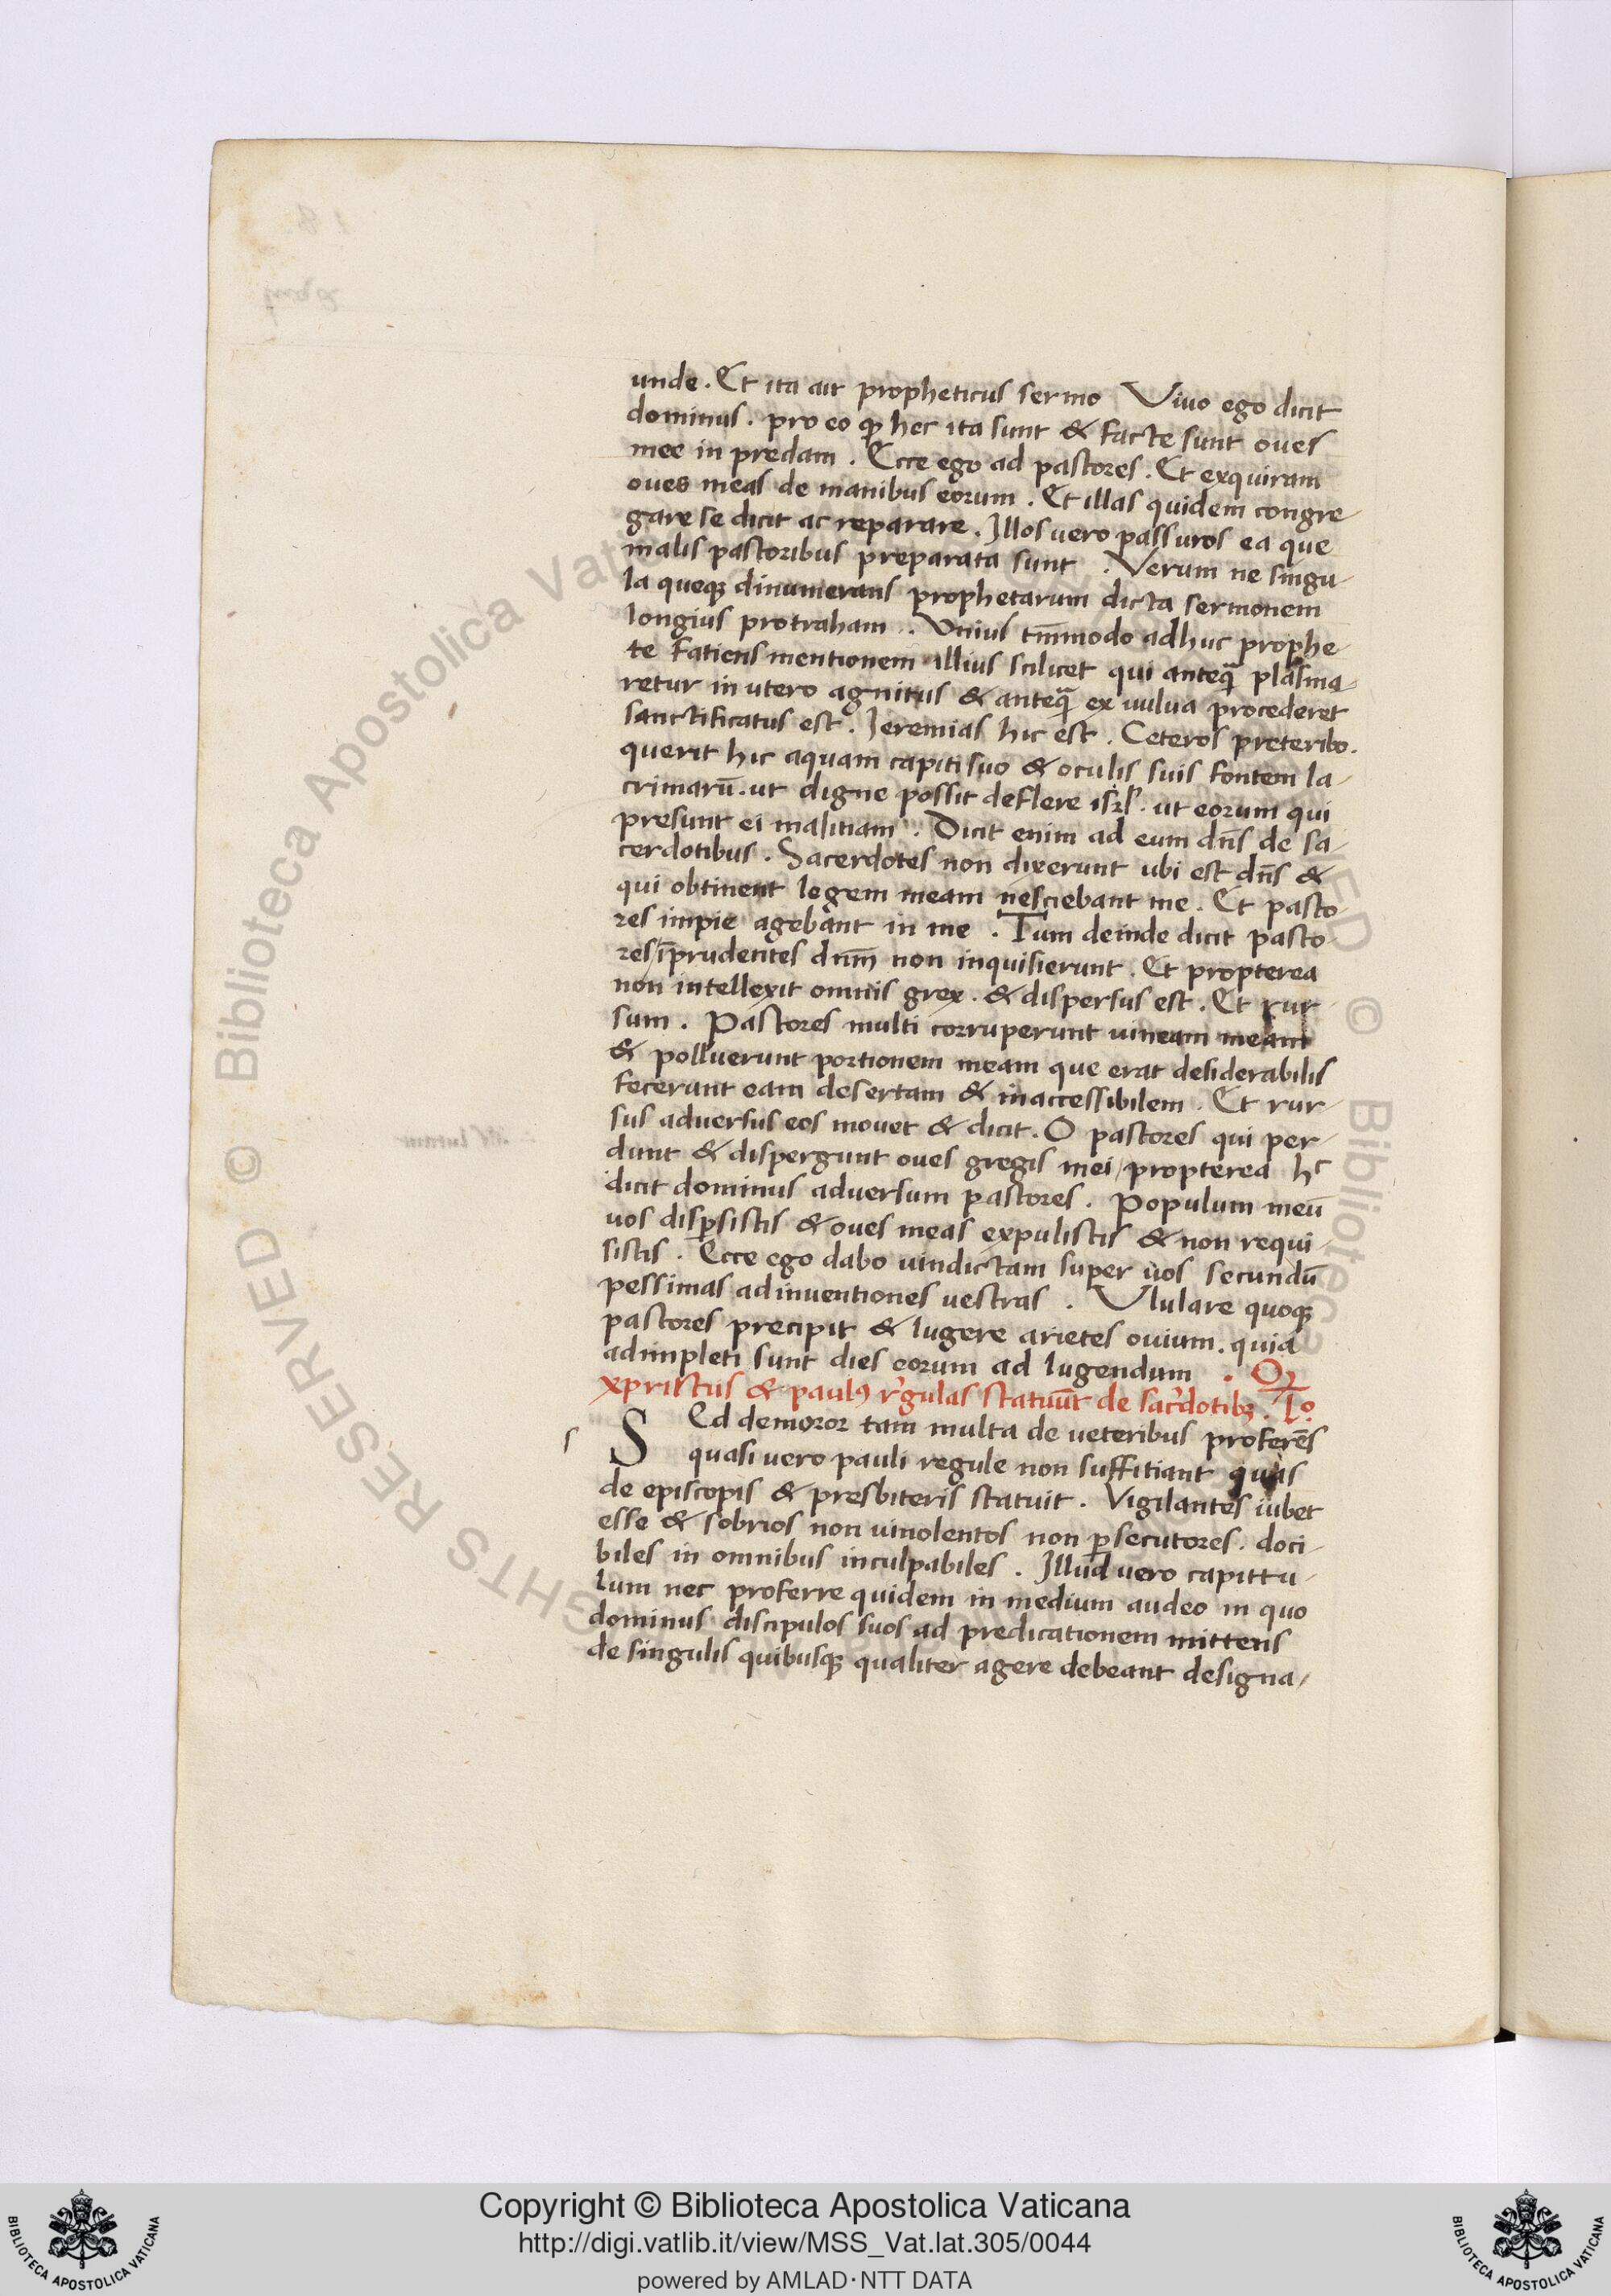 unde. Et ita ait propheticus sermo Vivo ego dicit
dominus. pro eo ꝙ hec ita sunt & facte sunt oves
mee in predam. Ecce ego ad pastores. Et exquiram
oues meas de manibus eorum. Et illas quidem congre-
gare se dicit ac reparare. Illos vero passuros ea que
malis pastoribus preparata sunt. Verum ne singu-
la queqꝫ dinumerans prophetarum dicta sermonem
longius protraham. Unius tm̄modo adhuc prophe-
te fatiens mentionem illius scilicet qui anteq̄ plasma-
retur in utero agnitus & anteq̄ ex vulva procederet
sanctificatus est. Jeremias hic est. Ceteros preteribo.
querit hic aquam capiti suo & oculis suis fontem la-
crimarū. ut digne possit deflere isrl. ut eorum qui
presunt ei malitiam. Dicit enim ad eum dn̄s de sa-
cerdotibus. Sacerdotes non dixerunt ubi est dn̄s &
qui obtinent legem meam nesciebant me. Et pasto-
res impie agebant in me. Tum deinde dicit pasto-
res īprudentes dnm̄ non inquisierunt. Et propterea
non intellexit omnis grex. & dispersus est. Et rur-
sum. Pastores multi corruperunt vineam meam
& polluerunt portionem meam que erat desiderabilis
fecerunt eam desertam & inaccessibilem. Et rur-
sus adversus eos movet & dicit. O pastores qui per-
dunt & dispergunt oves gregis mei / propterea hc
dicit dominus adversum pastores. Populum meū
uos disꝑsistis & oves meas expulistis & non requi-
sistis. Ecce ego dabo vindictam super vos secundū
pessimas adinventiones vestras. Ululare quoqꝫ
pastores precipit & lugere arietes ovium. quia
adimpleti sunt dies eorum ad lugendum. Qꝫ
xpristus & paulꝰ rʼgulas statuūt de sacʼdotibꝫ. Io.
s
SEd demoror tam multa de veteribus proferēs
quasi vero pauli regule non suffitiant quas
de episcopis & presbiteris statuit. Vigilantes iubet
esse & sobrios non vinolentos non ꝑsecutores. doci-
biles in omnibus inculpabiles. Illud vero capittu-
lum nec proferre quidem in medium audeo in quo
dominus discipulos suos ad predicationem mittens
de singulis quibusqꝫ qualiter agere debeant designa-
© Biblioteca Apostolica Vaticana
RIGHTS RESERVED
Copyright © Biblioteca Apostolica Vaticana
http://digi.vatlib.it/view/MSS_Vat.lat.305/0044
powered by AMLAD·NTT DATA
BIBLIOTECA APOSTOLICA VATICANA
BIBLIOTECA APOSTOLICA VATICANA